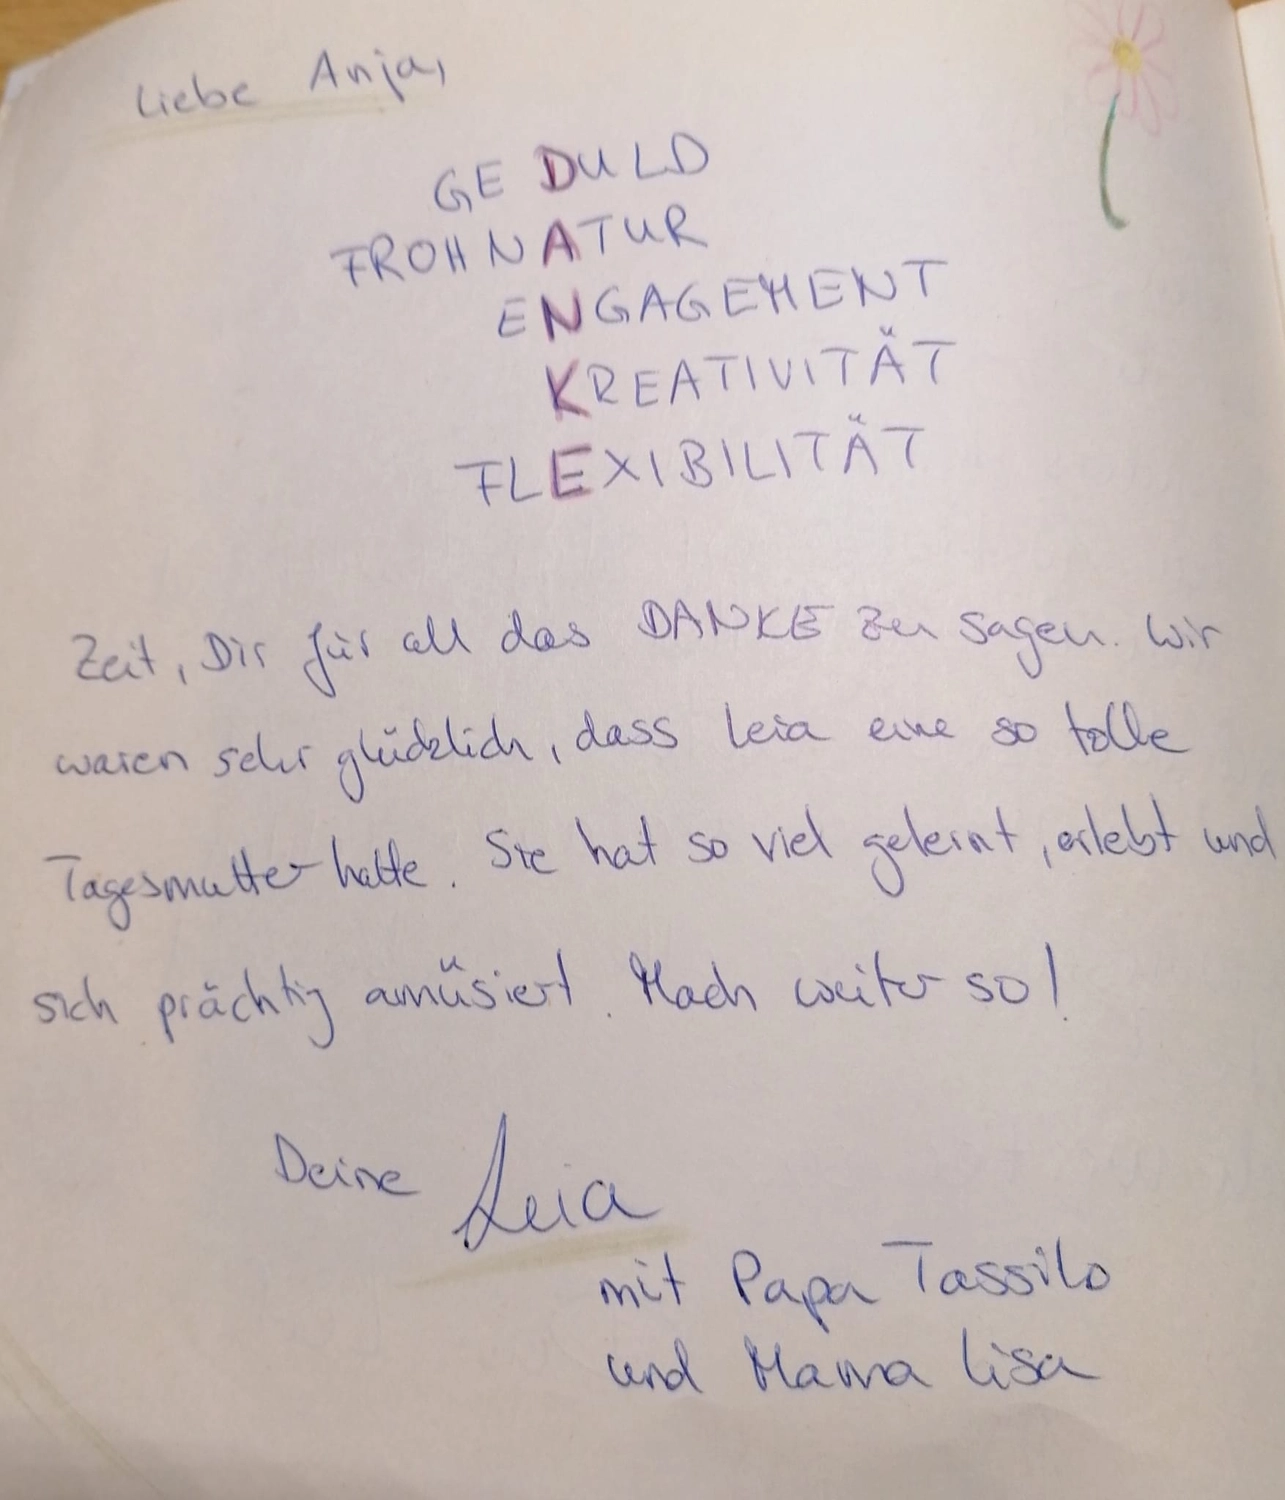 Liebe Anja,
GEDULD
FROHNATUR
ENGAGEMENT
KREATIVITÄT
FLEXIBILITÄT
Zeit, Dir für all das DANKE zu sagen. Wir
waren sehr glücklich, dass Leia eine so tolle
Tagesmutter hatte. Sie hat so viel gelernt, erlebt und
sich prächtig amüsiert. Mach weiter so!
Deine Leia
mit Papa Tassilo
und Mama Lisa